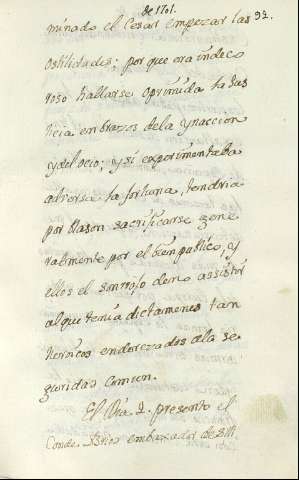 de 1701.
93.
minado el Cesar empezar las
ostilidades; por que era indeco
roso hallarse oprimida la Jus
ticia en brazos de la ynaccion
y del ocio; y si experimentaba
adversa la fortuna, tendria
por blason sacrificarse gene
ralmente por el bien publico, y
ellos el sonrojo de no assistir
al que tenia dictamenes tan
heroicos enderezados a la se
guridad comun.
El Dia 2. presentò el
Conde embaxador de